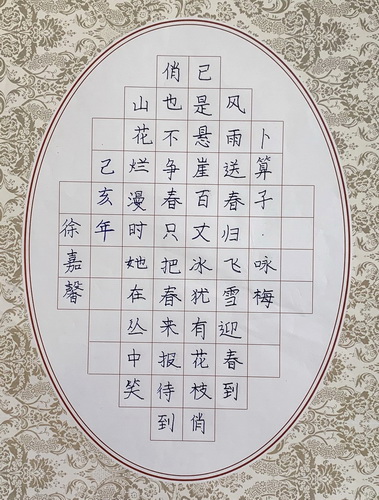 卜算子·咏梅
风雨送春归飞雪迎春到
已是悬崖百丈冰犹有花枝俏
俏也不争春只把春来报待到
山花烂漫时她在丛中笑
己亥年
徐嘉馨